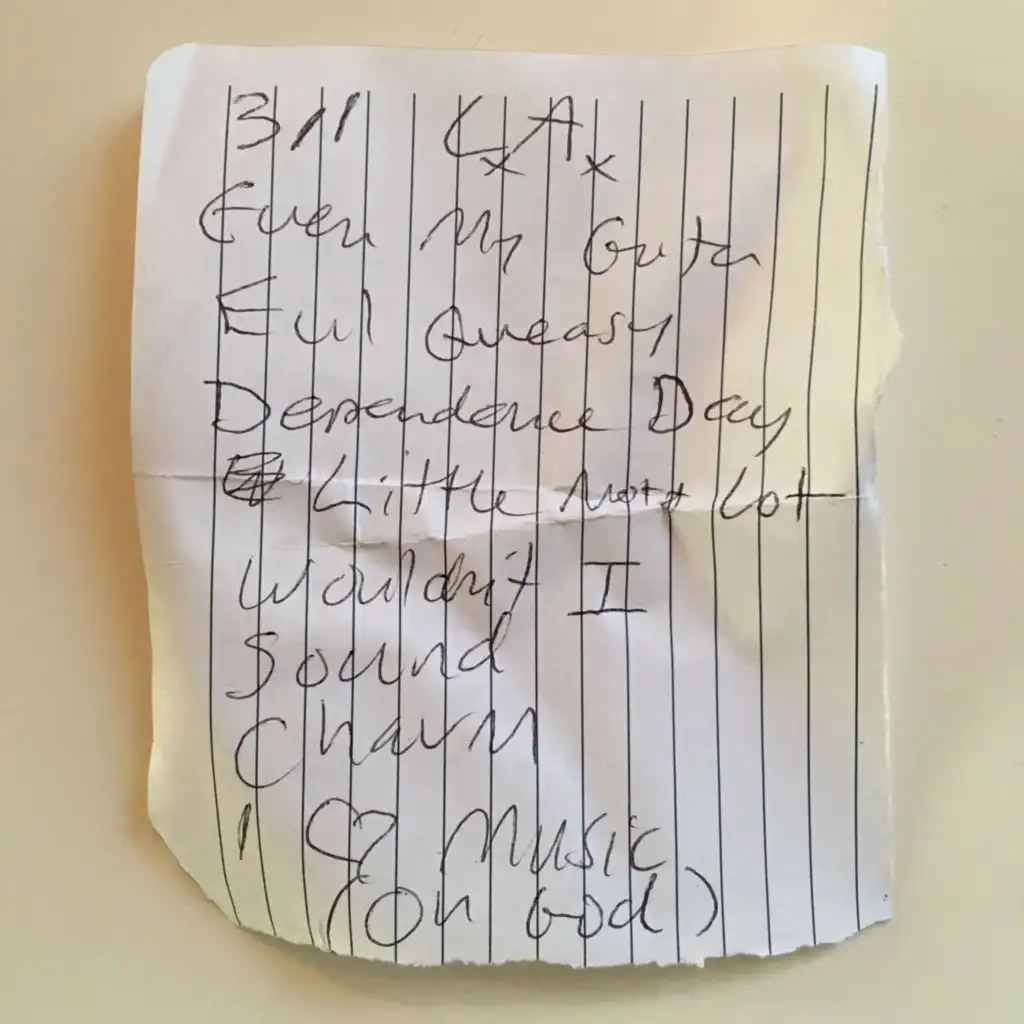 311 L.A.
x x
Even My Guta
Evil Queasy
Dependence Day
Little Not A Lot
Wouldn't I
Sound
Charm
I ♡ Music
(Oh God)